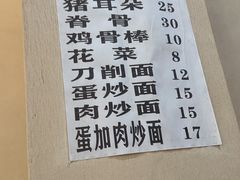 猪耳朵 25
脊骨 30
鸡骨棒 10
花菜 8
刀削面 12
蛋炒面 15
肉炒面 15
蛋加肉炒面 17